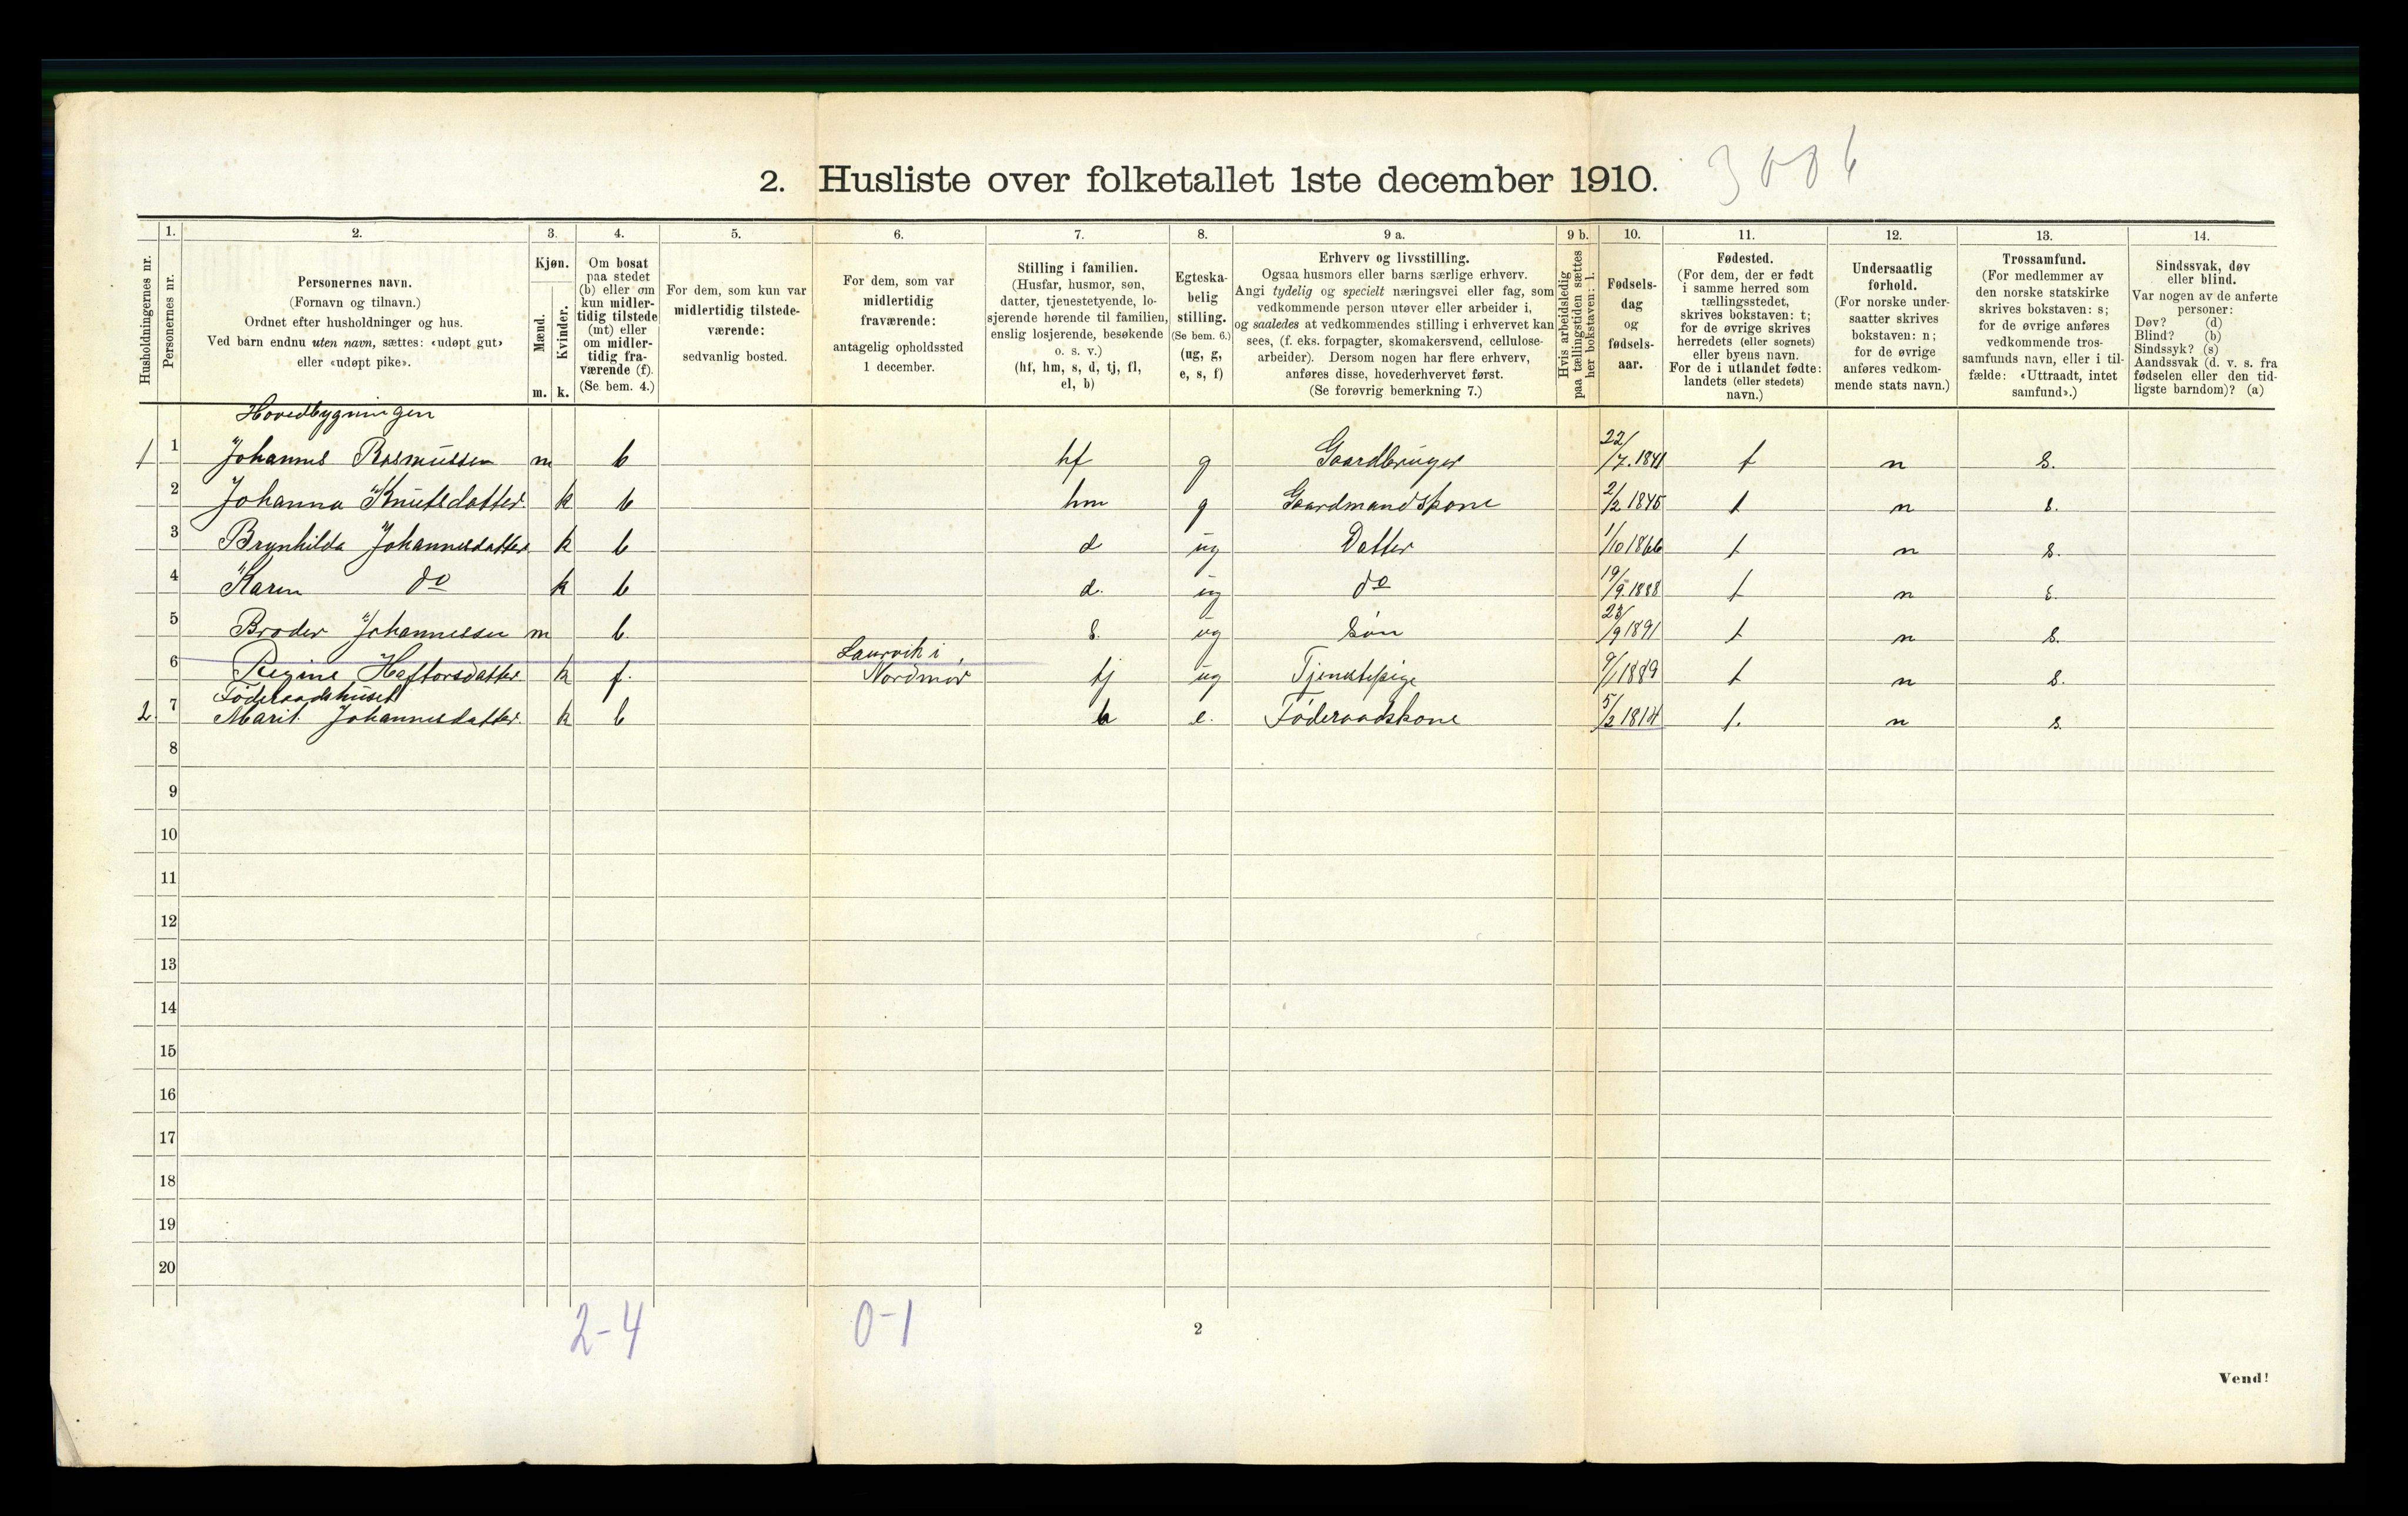 2. Husliste over folketallet 1ste december 1910.
Husholdningernes nr.
1.
Personernes nr.
2.
Personernes navn.
(Fornavn og tilnavn.)
Ordnet efter husholdninger og hus.
Ved barn endnu uten navn, sættes: «udøpt gut»
eller «udøpt pike».
3.
Kjøn.
Mænd.
Kvinder.
m. k.
4.
Om bosat
paa stedet
(b) eller om
kun midler-
tidig tilstede
(mt) eller
om midler-
tidig fra-
værende (f).
(Se bem. 4.)
5.
For dem, som kun var
midlertidig tilstede-
værende:
sedvanlig bosted.
6.
For dem, som var
midlertidig
fraværende:
antagelig opholdssted
1 december.
7.
Stilling i familien.
(Husfar, husmor, søn,
datter, tjenestetyende, lo-
sjerende hørende til familien,
enslig losjerende, besøkende
o. s. v.)
(hf, hm, s, d, tj, fl,
el, b)
8.
Egteska-
belig
stilling.
(Se bem. 6.)
(ug, g,
e, s, f)
9 a.
Erhverv og livsstilling.
Ogsaa husmors eller barns særlige erhverv.
Angi tydelig og specielt næringsvei eller fag, som
vedkommende person utøver eller arbeider i,
og saaledes at vedkommendes stilling i erhvervet kan
sees, (f. eks. forpagter, skomakersvend, cellulose-
arbeider). Dersom nogen har flere erhverv,
anføres disse, hovederhvervet først.
(Se forøvrig bemerkning 7.)
9 b.
Hvis arbeidsledig
paa tællingstiden sættes
her bokstaven: l.
10.
Fødsels-
dag
og
fødsels-
aar.
11.
Fødested.
(For dem, der er født
i samme herred som
tællingsstedet,
skrives bokstaven: t;
for de øvrige skrives
herredets (eller sognets)
eller byens navn.
For de i utlandet fødte:
landets (eller stedets)
navn.)
12.
Undersaatlig
forhold.
(For norske under-
saatter skrives
bokstaven: n;
for de øvrige
anføres vedkom-
mende stats navn.)
13.
Trossamfund.
(For medlemmer av
den norske statskirke
skrives bokstaven: s;
for de øvrige anføres
vedkommende tros-
samfunds navn, eller i til-
fælde: «Uttraadt, intet
samfund».)
14.
Sindssvak, døv
eller blind.
Var nogen av de anførte
personer:
Døv? (d)
Blind? (b)
Sindssyk? (s)
Aandssvak (d. v. s. fra
fødselen eller den tid-
ligste barndom)? (a)
Hovedbygningen
1 1 Johannes Rasmussen m b hf g Gaardbruger 22/7. 1841 t n s.
2 Johanna Knutsdatter. k b hm g Gaardmandskone 2/2 1845 t n s.
3 Brynhilda Johannesdatter k b d ug Datter 1/10 1866 t n s.
4 Karen do k b d. ug do 19/9. 1888 t n s.
5 Broder Johannessen m b. s. ug Søn 23/9 1891 t n s.
6 Regine Heftorsdatter k f. Laurvik i Nordmør tj ug Tjenestepige 9/1 1889 t n s.
Føderaadshuset
2. 7 Marit Johannesdatter. k b b e. Føderaadskone 5/2 1814 t. n s.
8
9
10
11
12
13
14
15
16
17
18
19
20
2-4
0-1
2
Vend!